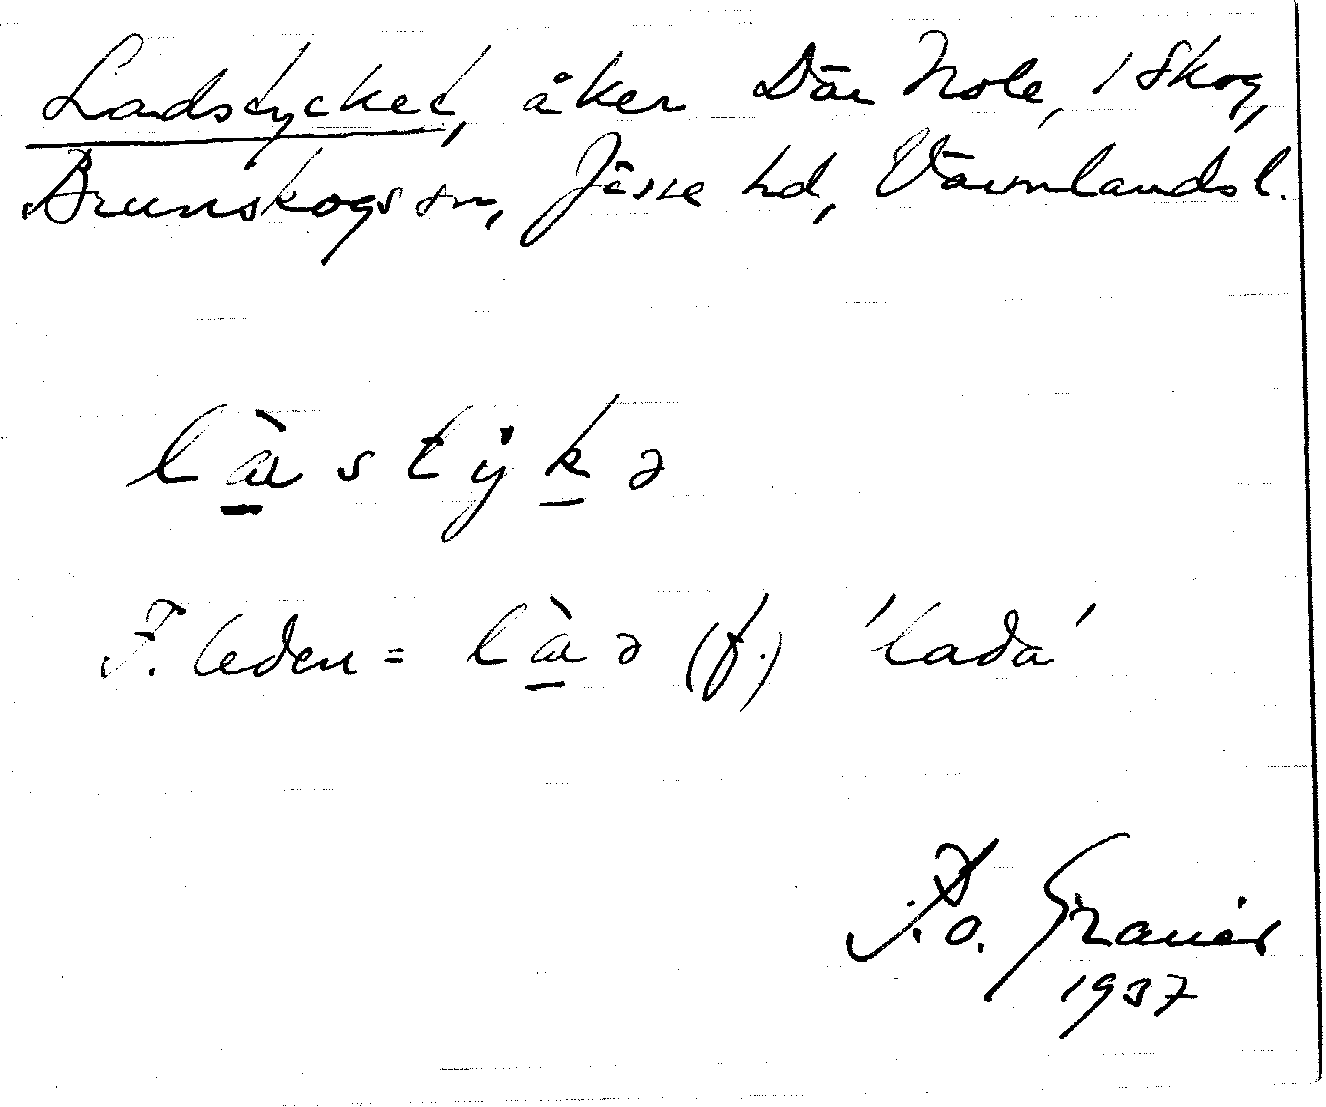 Ladstycket, åker Där Nole, 1 Skog,
Brunskogs sn, Jösse hd, Värmlands l.
là̱stẏḵə
F. leden = là̱ə (f.) 'lada'
P. o.
1937